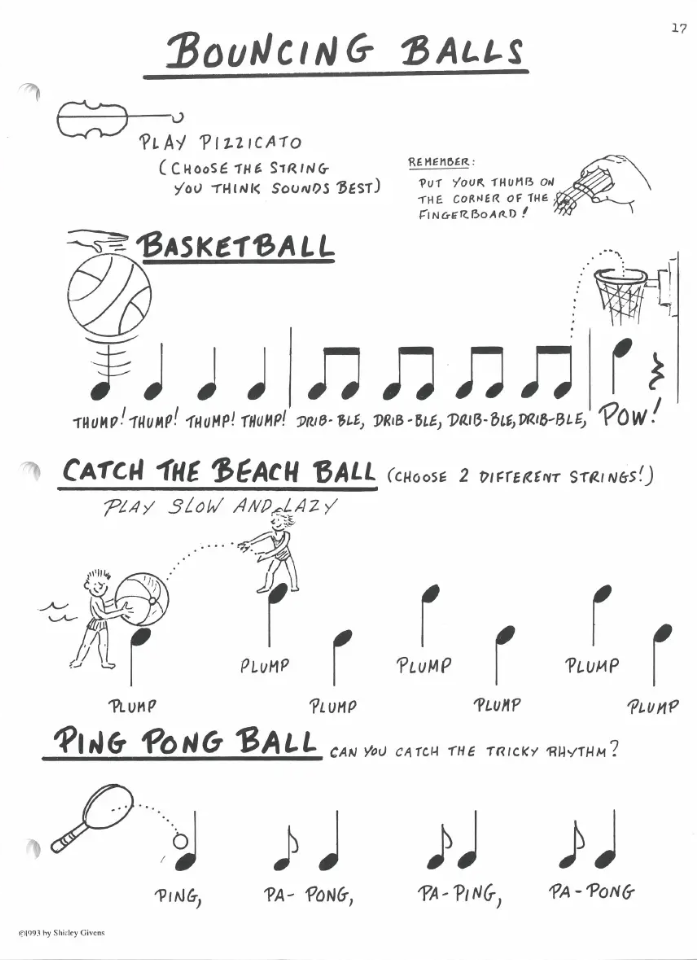 17
BOUNCING BALLS
PLAY PIZZICATO
(CHOOSE THE STRING
YOU THINK SOUNDS BEST)
REMEMBER:
PUT YOUR THUMB ON
THE CORNER OF THE
FINGERBOARD!
BASKETBALL
THUMP! THUMP! THUMP! THUMP! DRIB-BLE, DRIB-BLE, DRIB-BLE, DRIB-BLE, POW!
CATCH THE BEACH BALL (CHOOSE 2 DIFFERENT STRINGS!)
PLAY SLOW AND LAZY
PLUMP PLUMP PLUMP
PLUMP PLUMP PLUMP PLUMP
PING PONG BALL CAN YOU CATCH THE TRICKY RHYTHM?
PING, PA- PONG, PA-PING, PA-PONG
©1993 by Shirley Givens